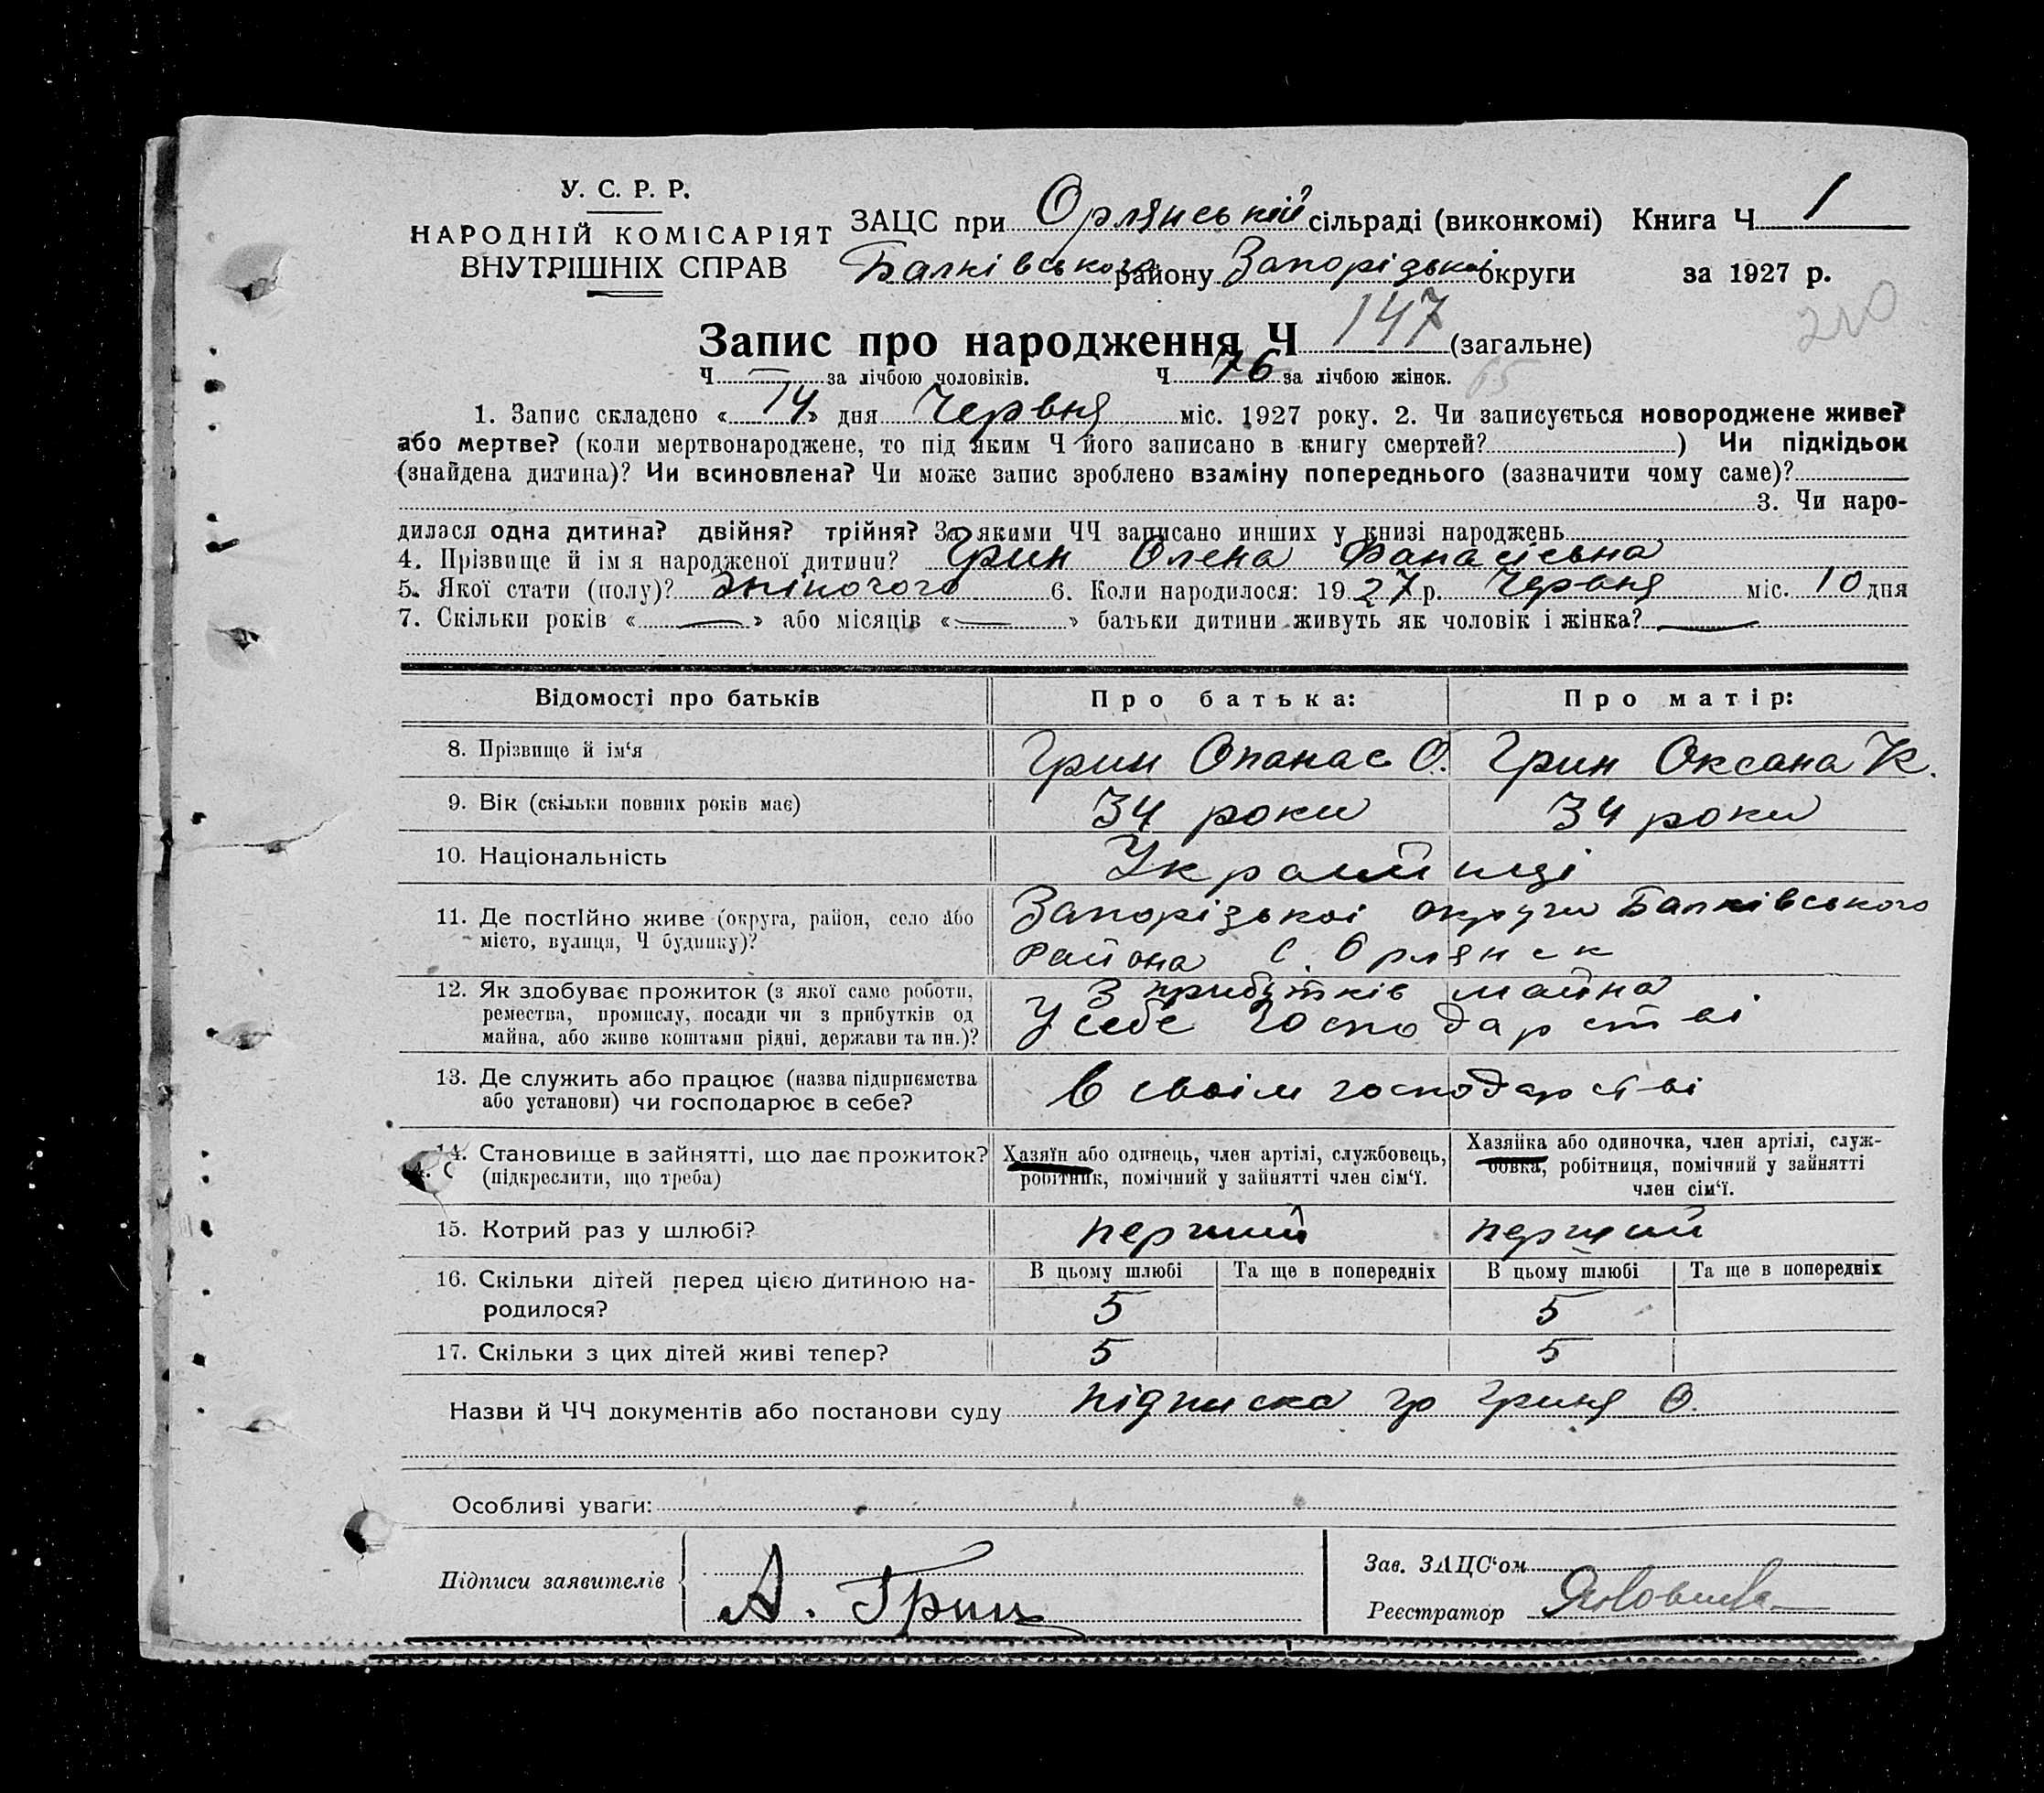 У. С. Р. Р.
НАРОДНІЙ КОМІСАРІЯТ
ВНУТРІШНІХ СПРАВ
ЗАЦС при Орлянській сільраді (виконкомі) Книга Ч 1
Балківського району Запорідької округи за 1927 р.
210
Запис про народження Ч 147 (загальне)
Ч — за лічбою чоловіків. Ч 76 за лічбою жінок. 65
1. Запис складено « 14 » дня Червня міс. 1927 року. 2. Чи записується новороджене живе?
або мертве? (коли мертвонароджене, то під яким Ч його записано в книгу смертей? ) Чи підкідьок
(знайдена дитина)? Чи всиновлена? Чи може запис зроблено взаміну попереднього (зазначити чому саме)?
3. Чи наро-
дилася одна дитина? двійня? трійня? За якими ЧЧ записано инших у книзі народжень
4. Прізвище й ім'я народженої дитини? Грин Олена Панасівна
5. Якої стати (полу)? жіночого 6. Коли народилося: 1927 р. Червня міс. 10 дня
7. Скільки років « — » або місяців « — » батьки дитини живуть як чоловік і жінка? —
Відомості про батьків Про батька: Про матір:
8. Прізвище й ім'я Грин Опанас О. Грин Оксана К.
9. Вік (скільки повних років має) 34 роки 34 роки
10. Національність Українці
11. Де постійно живе (округа, район, село або Запорізької округи Балківського
місто, вулиця, Ч будинку)? района с. Орлянск
12. Як здобуває прожиток (з якої саме роботи, З прибутків майна
ремества, промислу, посади чи з прибутків од У себе господарстві
майна, або живе коштами рідні, держави та ин.)?
13. Де служить або працює (назва підприємства в своім господарстві
або установи) чи господарює в себе?
14. Становище в зайнятті, що дає прожиток? Хазяїн або одинець, член артілі, службовець, Хазяйка або одиночка, член артілі, служ-
(підкреслити, що треба) робітник, помічний у зайнятті член сім'ї. бовка, робітниця, помічний у зайнятті
член сім'ї.
15. Котрий раз у шлюбі? перший перший
16. Скільки дітей перед цією дитиною на- В цьому шлюбі Та ще в попередніх В цьому шлюбі Та ще в попередніх
родилося? 5 5
17. Скільки з цих дітей живі тепер? 5 5
Назви й ЧЧ документів або постанови суду підписка гр Гриня О.
Особливі уваги:
Підписи заявителів А. Грин
Зав. ЗАЦС'ом
Реєстратор